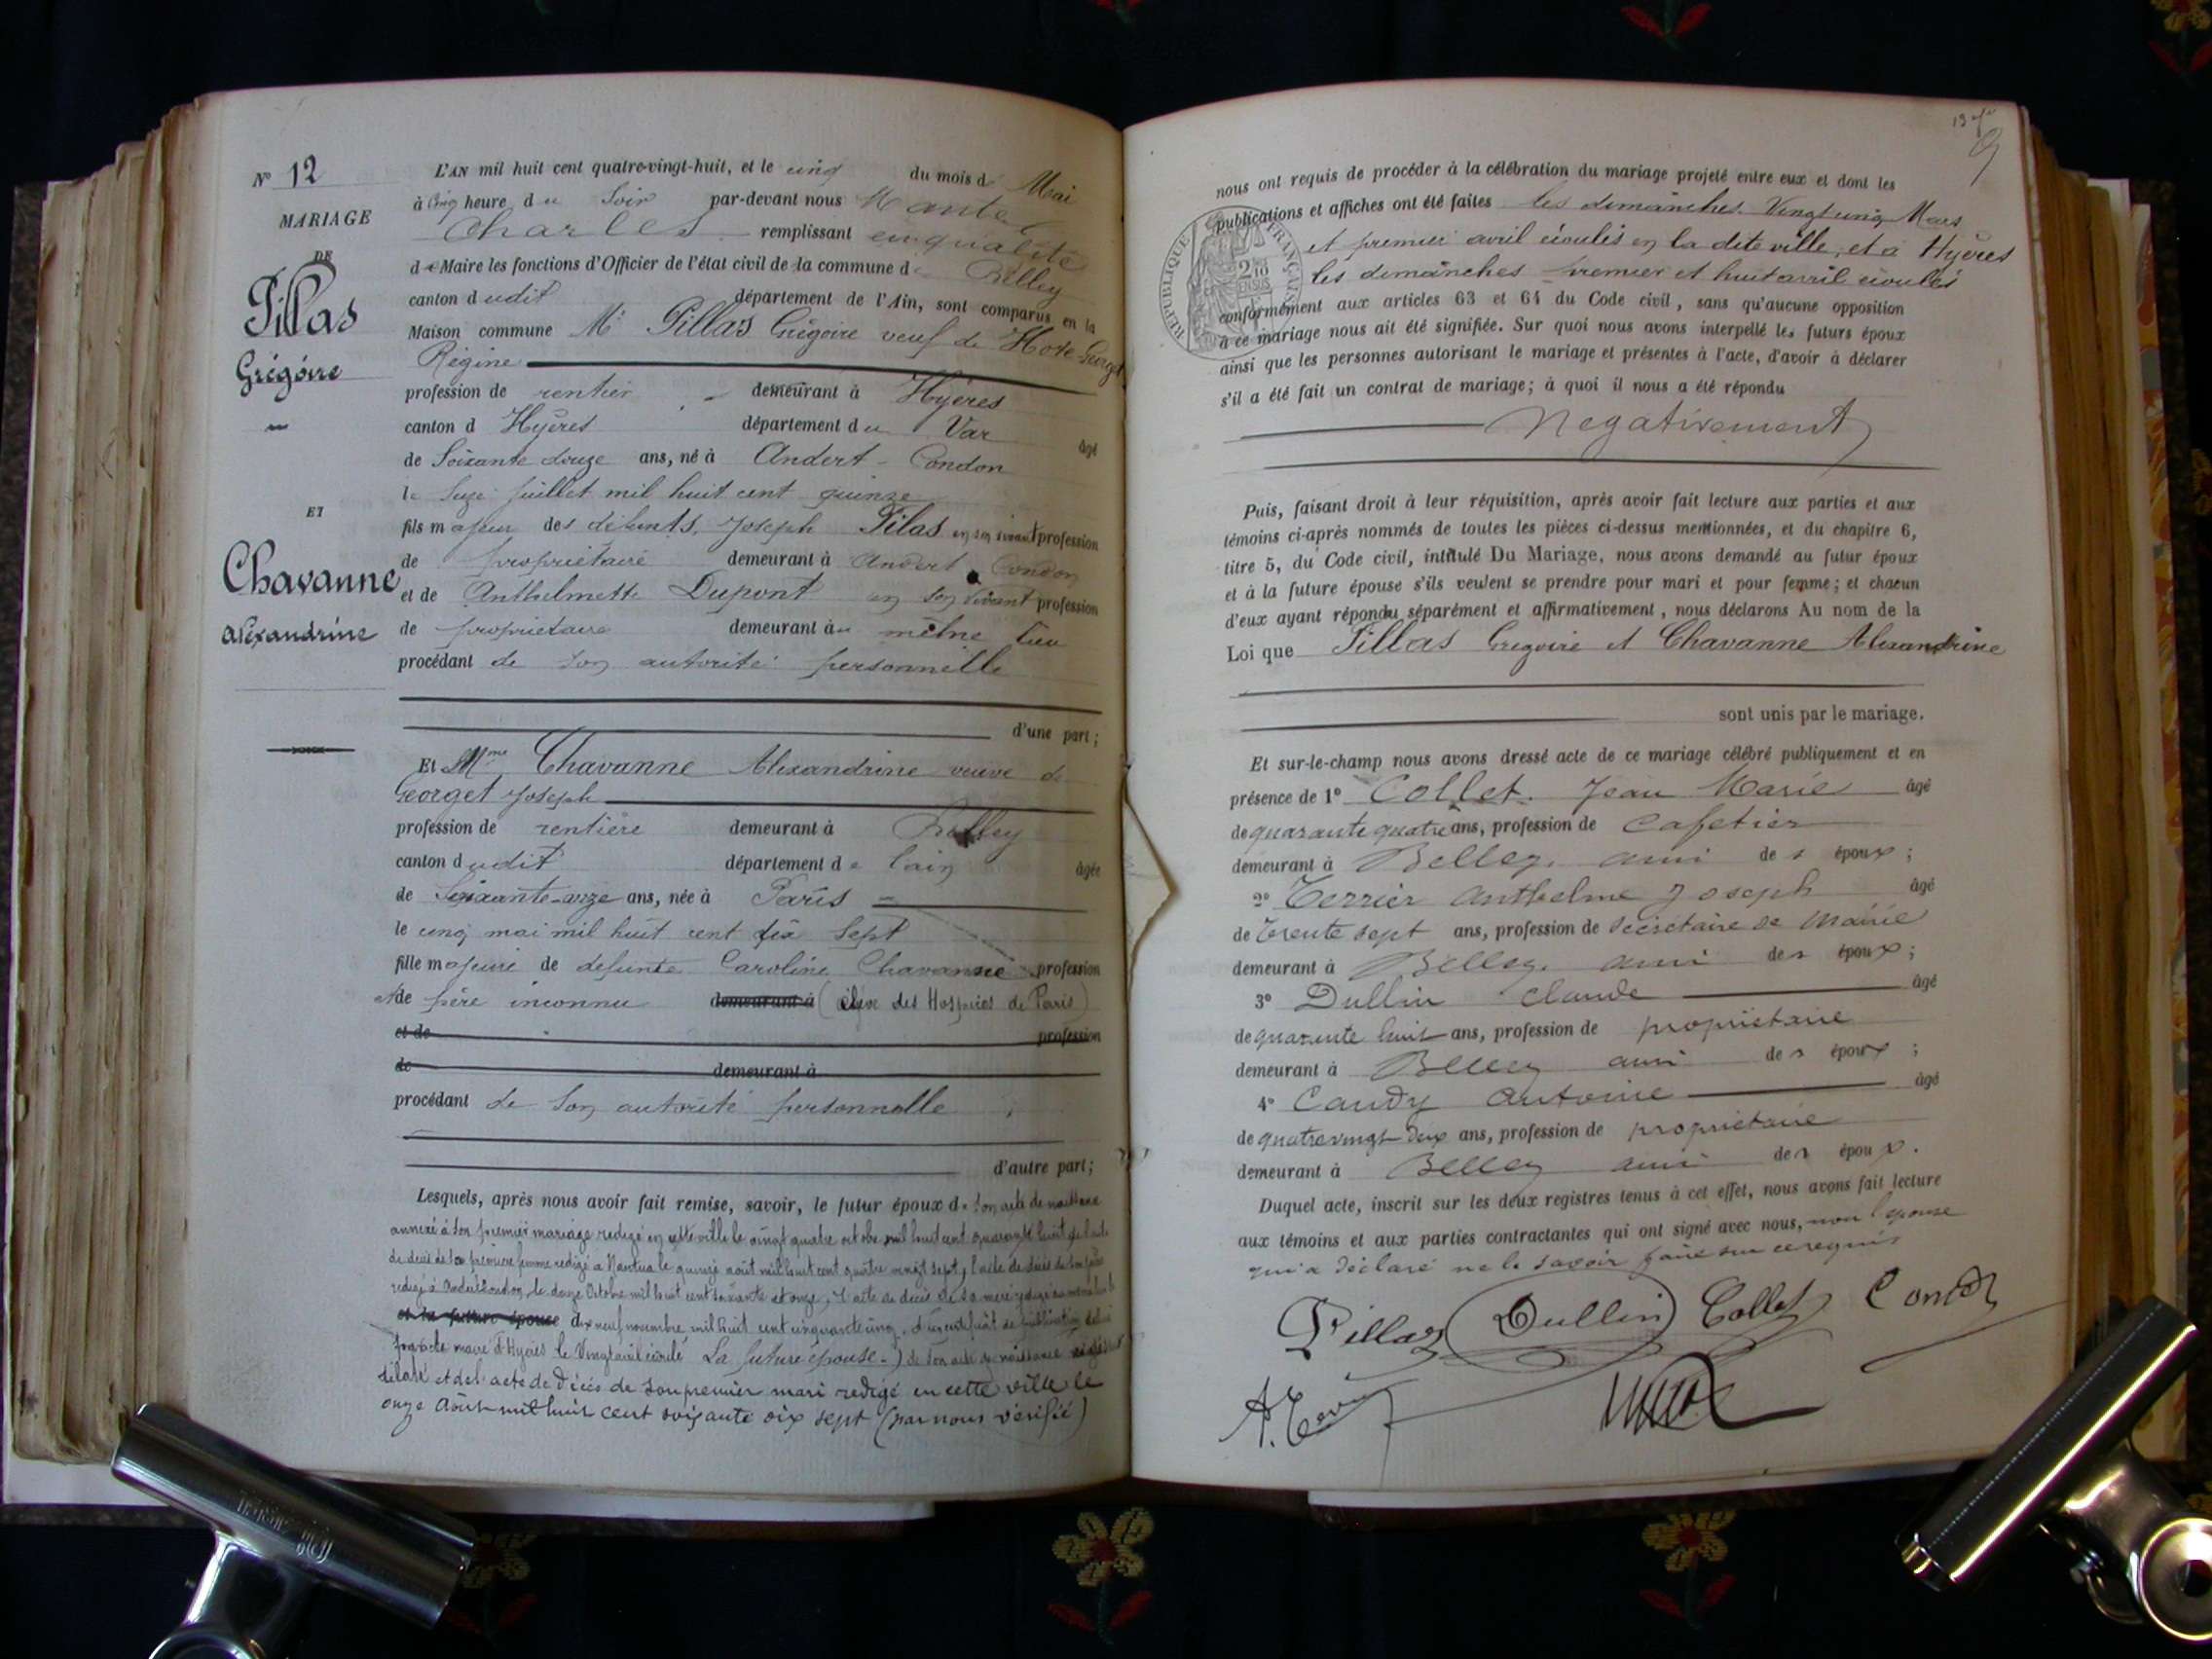 N° 12
MARIAGE
DE
Pillas
Grégoire
ET
Chavanne
Alexandrine
L'AN mil huit cent quatre-vingt-huit, et le cinq du mois d Mai
à cinq heure du Soir par-devant nous
Charles remplissant en qualité
de Maire les fonctions d'Officier de l'état civil de la commune de Belley
canton dudit département de l'Ain, sont comparus en la
Maison commune Mr Pillas Grégoire veuf de
Régine
profession de rentier demeurant à Hyères
canton d Hyères département du Var âgé
de Soixante douze ans, né à Andert-Condon
le juillet mil huit cent quinze
fils majeur des défunts Joseph Pilas en son vivant profession
de propriétaire demeurant à Andert Condon
et de Anthelmette Dupont en son vivant profession
de propriétaire demeurant au même lieu
procédant de son autorité personnelle
d'une part;
Et Mme Chavanne Alexandrine veuve de
Georget Joseph
profession de rentière demeurant à Belley
canton dudit département de l'ain âgée
de Soixante-onze ans, née à Paris
le cinq mai mil huit cent dix sept
fille majeure de defunte Caroline Chavanne profession
et de père inconnu demeurant à (élève des Hospices de Paris)
et de profession
de demeurant à
procédant de son autorité personnelle
d'autre part;
Lesquels, après nous avoir fait remise, savoir, le futur époux de son acte de naissance
annexé à son premier mariage redigé en cette ville le vingt quatre octobre mil huit cent quarante huit, de l'acte
de décès de sa première femme redigé à Nantua le quinze août mil huit cent quatre vingt sept, l'acte de décès de son père
redigé à Andert Condon le douze Octobre mil huit cent soixante et onze, l'acte de décès de sa mère redigé au même lieu le
et la future épouse dix neuf novembre mil huit cent cinquante cinq, d'un certificat de publication délivré
par le maire d'Hyères le Vingt avril écoulé La future épouse de son acte de naissance
et de l'acte de décès de son premier mari redigé en cette ville le
onze Août mil huit cent soixante dix sept (par nous vérifié)
nous ont requis de procéder à la célébration du mariage projeté entre eux et dont les
publications et affiches ont été faites les dimanches Vingt cinq Mars
et premier avril écoulés en la dite ville, et à Hyères
les dimanches premier et huit avril écoulés
RÉPUBLIQUE FRANÇAISE
conformément aux articles 63 et 64 du Code civil, sans qu'aucune opposition
à ce mariage nous ait été signifiée. Sur quoi nous avons interpellé les futurs époux
ainsi que les personnes autorisant le mariage et présentes à l'acte, d'avoir à déclarer
s'il a été fait un contrat de mariage; à quoi il nous a été répondu
Negativement
Puis, faisant droit à leur réquisition, après avoir fait lecture aux parties et aux
témoins ci-après nommés de toutes les pièces ci-dessus mentionnées, et du chapitre 6,
titre 5, du Code civil, intitulé Du Mariage, nous avons demandé au futur époux
et à la future épouse s'ils veulent se prendre pour mari et pour femme; et chacun
d'eux ayant répondu séparément et affirmativement, nous déclarons Au nom de la
Loi que Pillas Gregoire et Chavanne Alexandrine
sont unis par le mariage.
Et sur-le-champ nous avons dressé acte de ce mariage célébré publiquement et en
présence de 1° Collet Jean Marie âgé
de quarante quatre ans, profession de Cafetier
demeurant à Belley ami des époux;
2° Terrier Anthelme Joseph âgé
de trente sept ans, profession de Secrétaire de Mairie
demeurant à Belley ami des époux;
3° Dullin Claude âgé
de quarante huit ans, profession de propriétaire
demeurant à Belley ami des époux;
4° Candy Antoine âgé
de quatrevingt deux ans, profession de propriétaire
demeurant à Belley ami des époux.
Duquel acte, inscrit sur les deux registres tenus à cet effet, nous avons fait lecture
aux témoins et aux parties contractantes qui ont signé avec nous, non l'épouse
qui a déclaré ne le savoir faire sur ce requis
Pillas Dullin Collet Candy